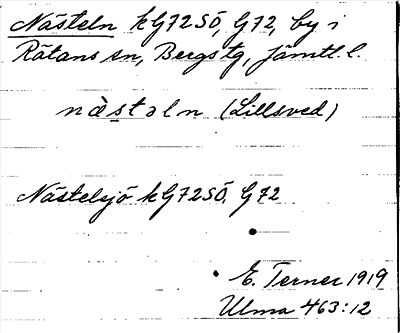 Nästeln kG72SÖ, G72, by i
Rätans sn, Bergs tg, Jämtl. l.
nä̀stəln (Lillsved)
Nästelsjö kG72SÖ, G72
E. Terner 1919
Ulma 463:12